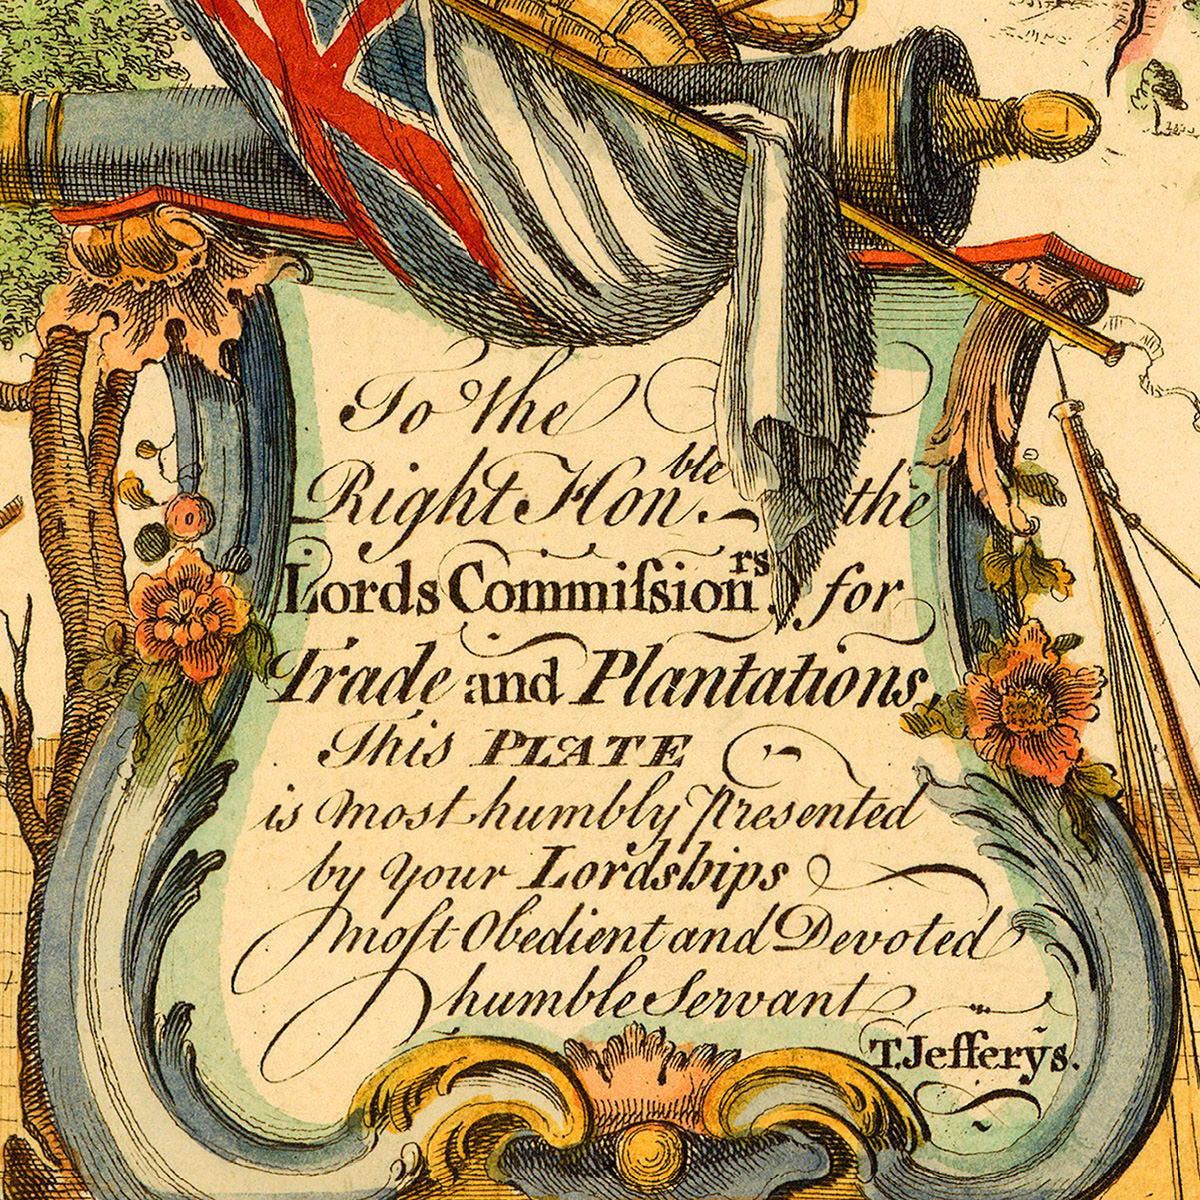 To the
Right Hon.ble the
Lords Commiſsion.rs for
Trade and Plantations,
This PLATE
is most humbly Presented
by your Lordships
moſt Obedient and Devoted
humble Servant
T. Jefferỹs.